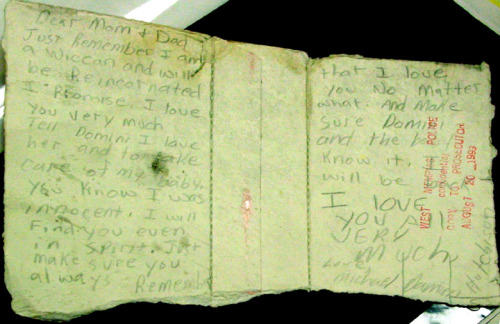 Dear Mom & Dad
Just Remember I am
a Wiccan and will
be Reincarnated
I Promise. I love
you very much
tell Domini I love
her and to take
care of my baby.
You know I was
innocent. I will
Find you even
in spirit. Just
make sure you
always Remember
that I love
you No Matter
what. And Make
sure Domini
and the
Know it.
will be
I LOVE
YOU ALL
VERY
Much
Love
Michael Damien
WEST MEMPHIS POLICE
confidential
COPY TO PROSECUTOR
AUGUST 20 1993